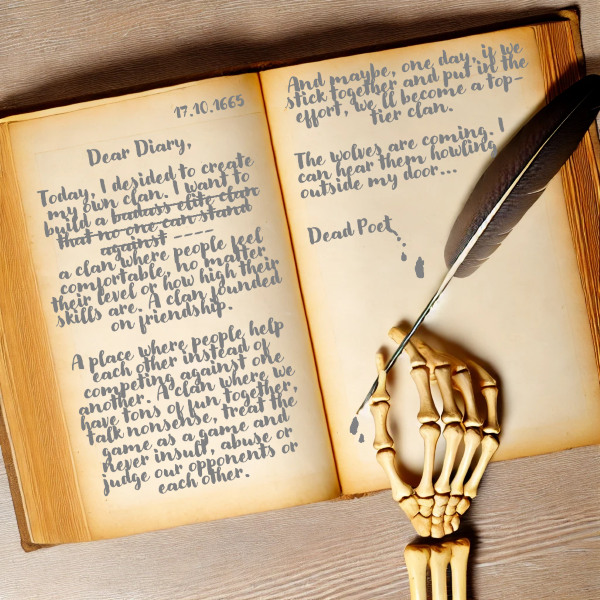 17.10.1665
Dear Diary,
Today, I desided to create
my own clan. I want to
build a badass elite clan
that no one can stand
against -----
a clan where people feel
comfortable, no matter
their level or how high their
skills are. A clan founded
on friendship.
A place where people help
each other instead of
competing against one
another. A clan where we
have tons of fun together,
talk nonsense, treat the
game as a game and
never insult, abuse or
judge our opponents or
each other.
And maybe, one day, if we
stick together and put in the
effort, we'll become a top-
tier clan.
The wolves are coming. I
can hear them howling
outside my door...
Dead Poet